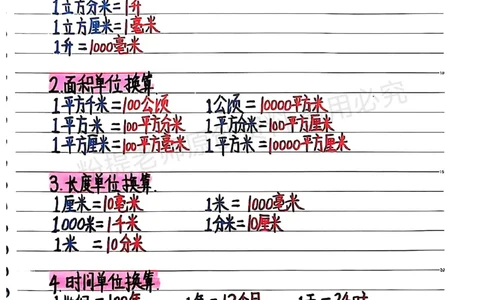 1立方分米=1升
1立方厘米=1毫米
1升=1000毫米
2.面积单位换算
1平方千米=100公顷 1公顷=10000平方米
1平方米=100平方分米 1平方分米=100平方厘米
1平方厘米=100平方毫米 1平方米=10000平方厘米
3.长度单位换算.
1厘米=10毫米 1米=1000毫米
1000米=1千米 1分米=10厘米
1米=10分米
4.时间单位换算.
1世纪=100年 1年=12个月 1天=24时